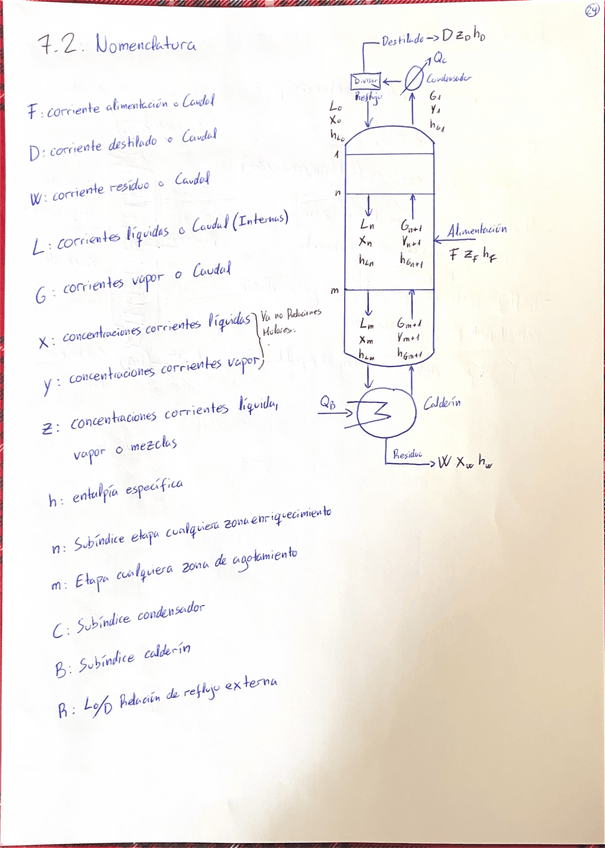 24
7.2. Nomenclatura
F: corriente alimentación o Caudal
D: corriente destilado o Caudal
W: corriente residuo o Caudal
L: corrientes líquidas o Caudal (Internas)
G: corrientes vapor o Caudal
X: concentraciones corrientes líquidas
y: concentraciones corrientes vapor
Ya no Relaciones
Molares.
z: concentraciones corrientes líquida,
vapor o mezclas
h: entalpía específica
n: Subíndice etapa cualquiera zona enriquecimiento
m: Etapa cualquiera zona de agotamiento
C: Subíndice condensador
B: Subíndice calderín
R: L₀/D Relación de reflujo externa
Destilado → D z_D h_D
Q_C
Divisor
Condensador
Reflujo
L₀
X₀
h_L₀
G₁
Y₁
h_G₁
1
n
L_n
X_n
h_Ln
G_n+1
Y_n+1
h_Gn+1
Alimentación
F z_F h_F
m
L_m
X_m
h_Lm
G_m+1
Y_m+1
h_Gm+1
Q_B
Calderín
Residuo
W X_w h_w